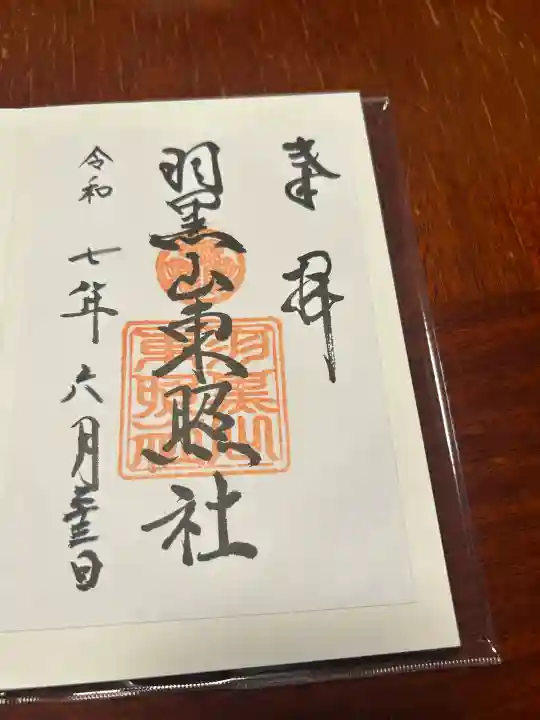 奉拝
羽黒山東照社
令和七年六月二十三日
羽黒山
東照社